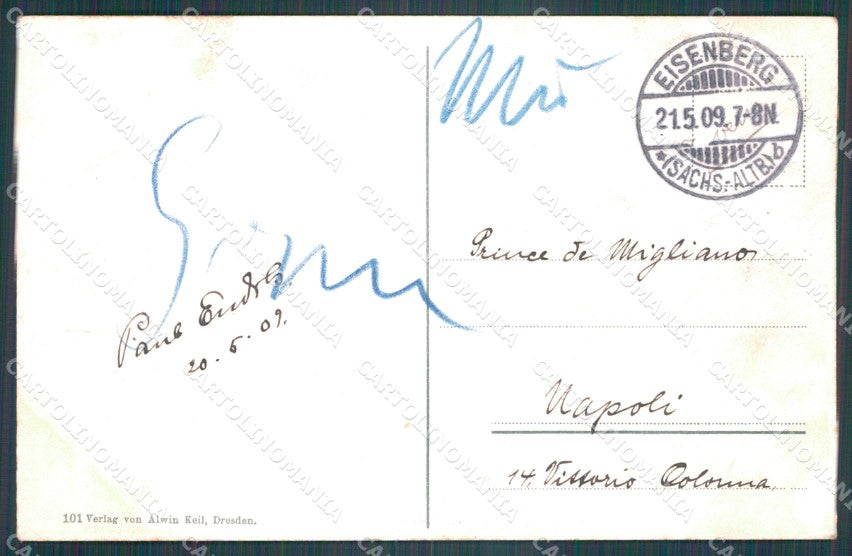 EISENBERG
21.5.09.7-8N.
*(SACHS.-ALTB.)b
Prince de Migliano
Napoli
14. Vittorio Colonna,
20.5.09.
101 Verlag von Alwin Keil, Dresden.
CARTOLINOMANIA